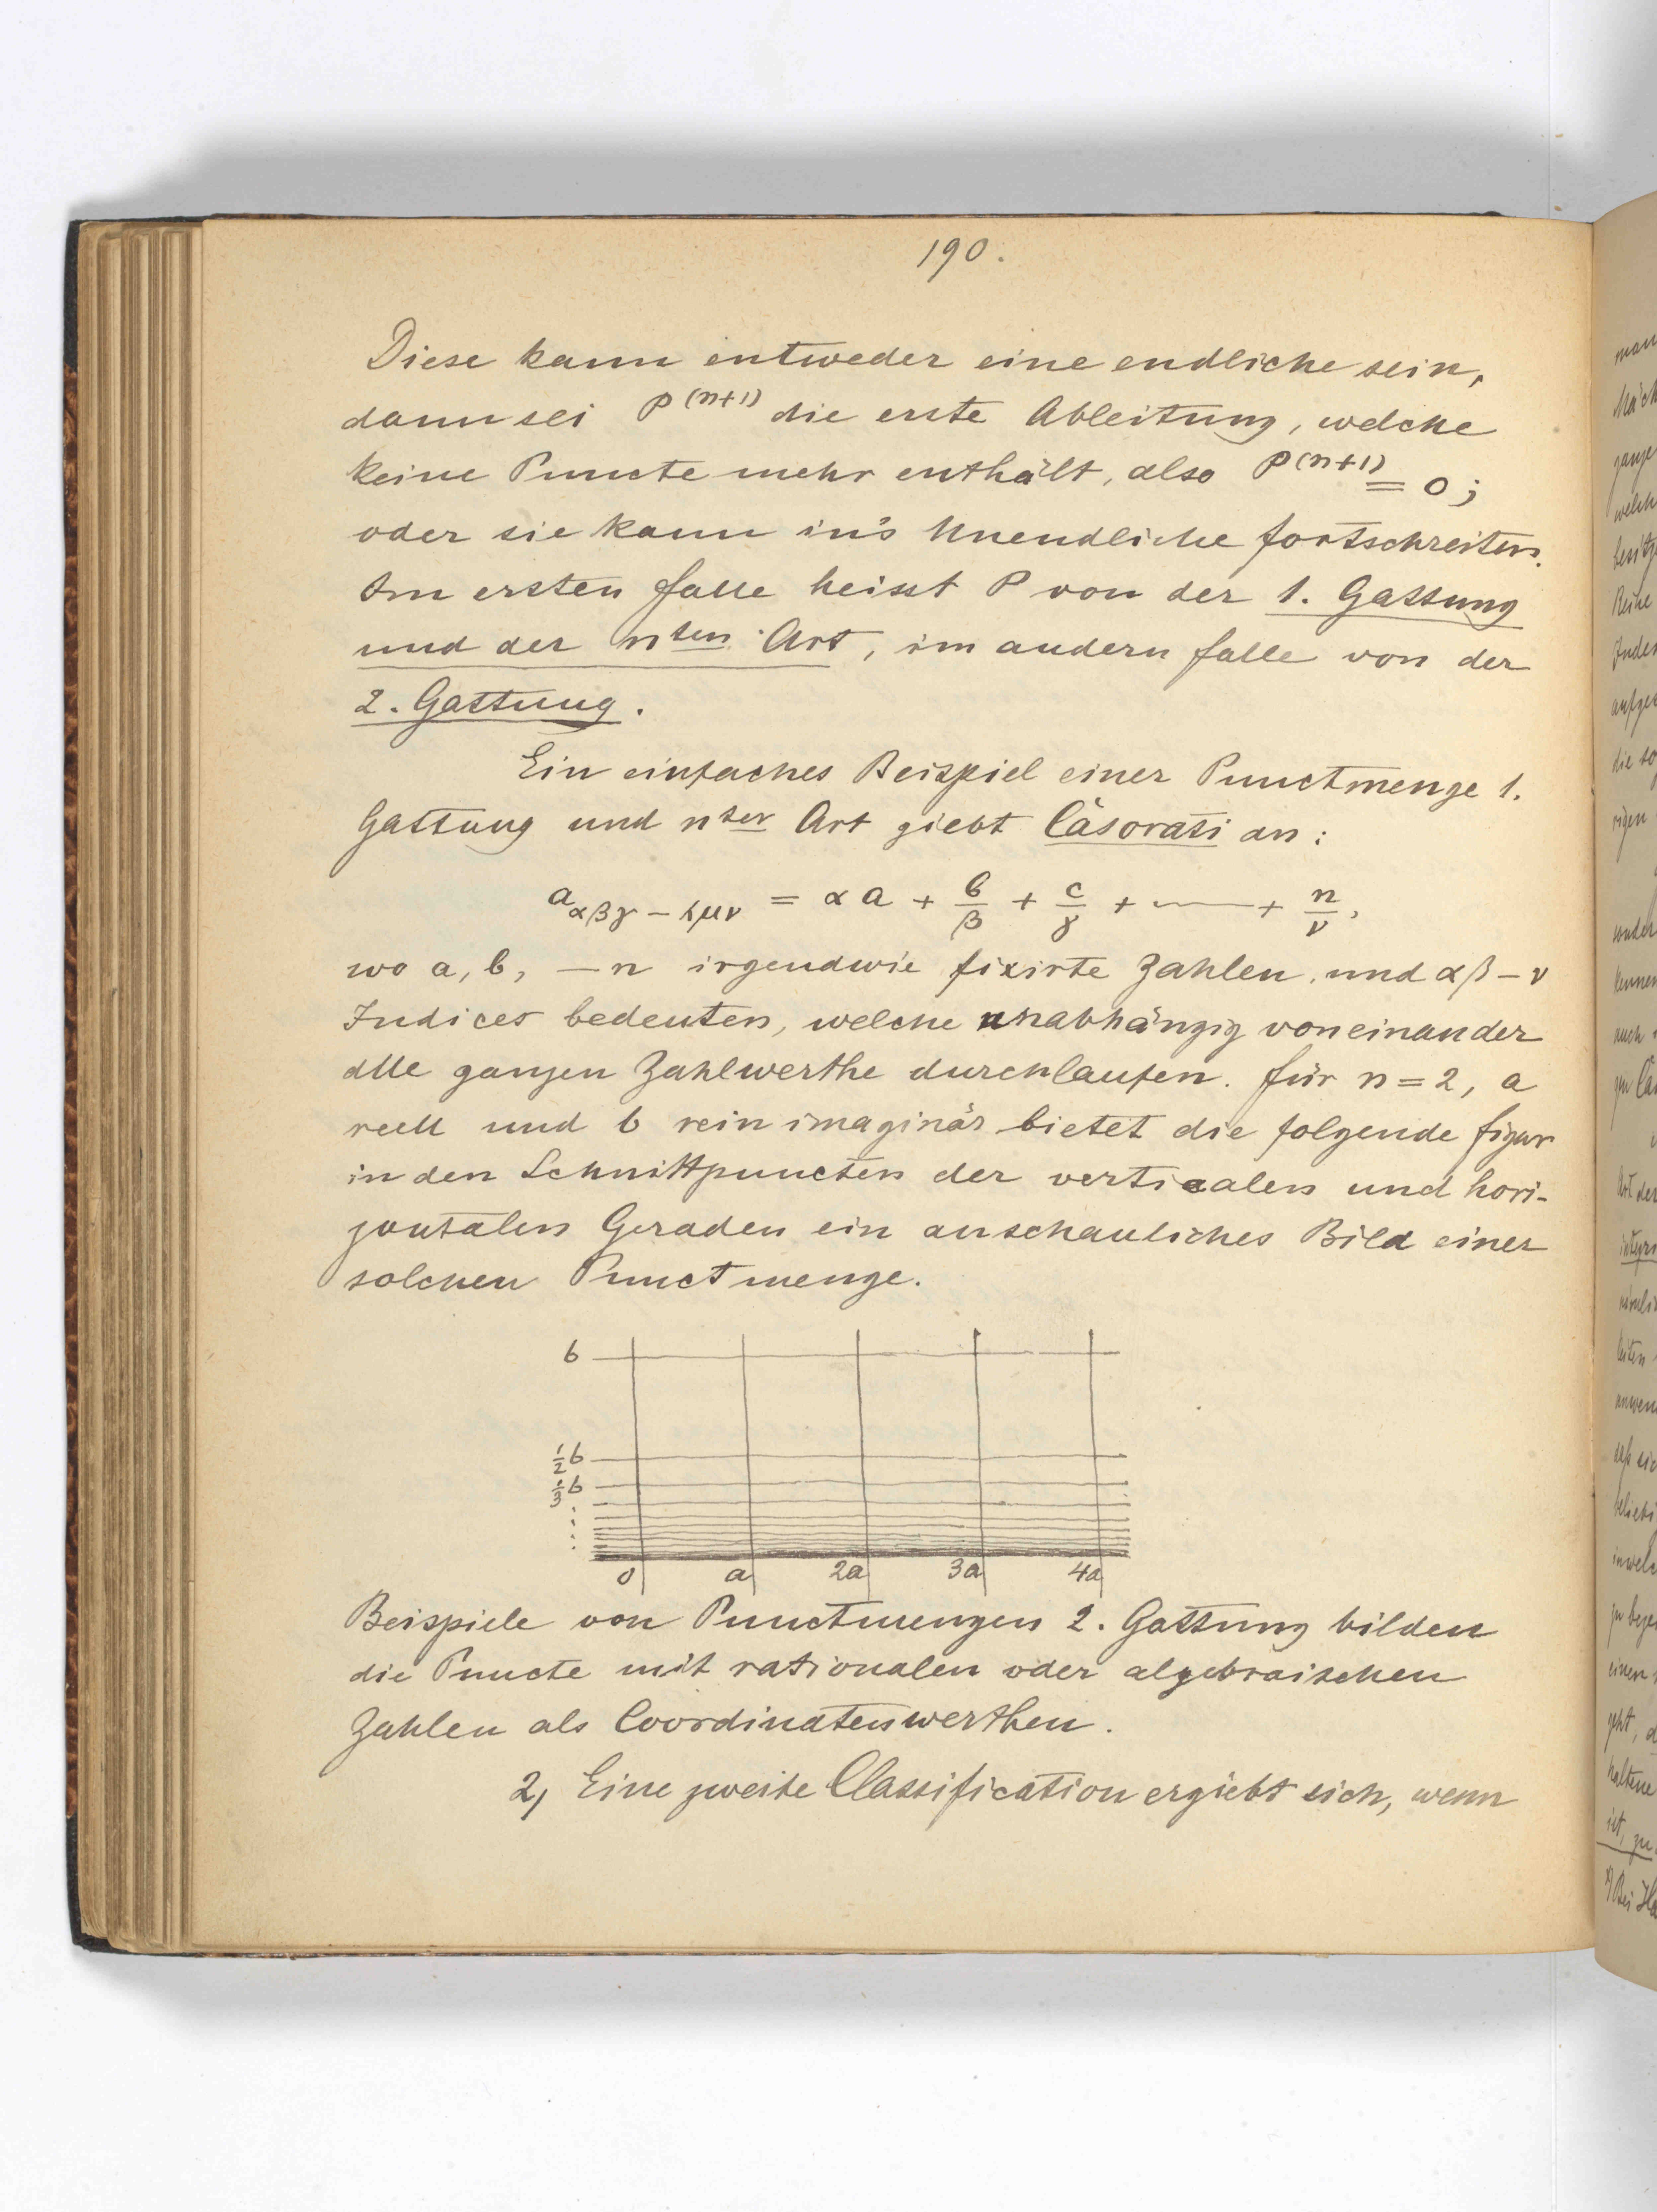 190.
Diese kann entweder eine endliche sein,
dann sei P^(n+1) die erste Ableitung, welche
keine Puncte mehr enthält, also P^(n+1) = 0;
oder sie kann in's Unendliche fortschreiten.
Im ersten Falle heisst P von der 1. Gattung
und der nten Art, im andern Falle von der
2. Gattung.
Ein einfaches Beispiel einer Punctmenge 1.
Gattung und nter Art giebt Càsorati an:
a_αβγ–λμν = αa + b/β + c/γ + —— + n/ν,
wo a, b, — n irgendwie fixirte Zahlen, und αβ – ν
Indices bedeuten, welche unabhängig von einander
alle ganzen Zahlwerthe durchlaufen. Für n = 2, a
reell und b rein imaginär bietet die folgende Figur
in den Schnittpuncten der verticalen und hori-
zontalen Geraden ein anschauliches Bild einer
solchen Punctmenge.
b
1/2 b
1/3 b
0 a 2a 3a 4a
Beispiele von Punctmengen 2. Gattung bilden
die Puncte mit rationalen oder algebraischen
Zahlen als Coordinatenwerthen.
2, Eine zweite Classification ergiebt sich, wenn
man
ganze
welch
Reihe
die so
rigen
auch